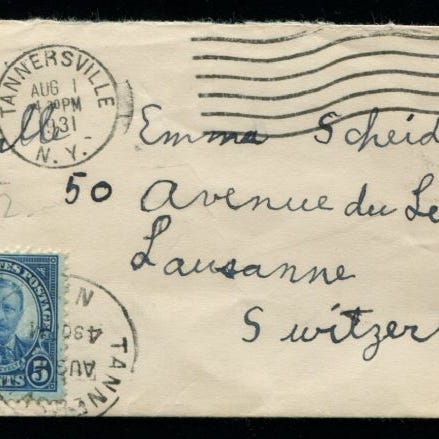 TANNERSVILLE
AUG 1
4 30 PM
1931
N. Y.
Emma Scheid
50 Avenue du Le
Lausanne
Switzer
ES POSTAGE
5
NTS
TANNE
AUG
430
N